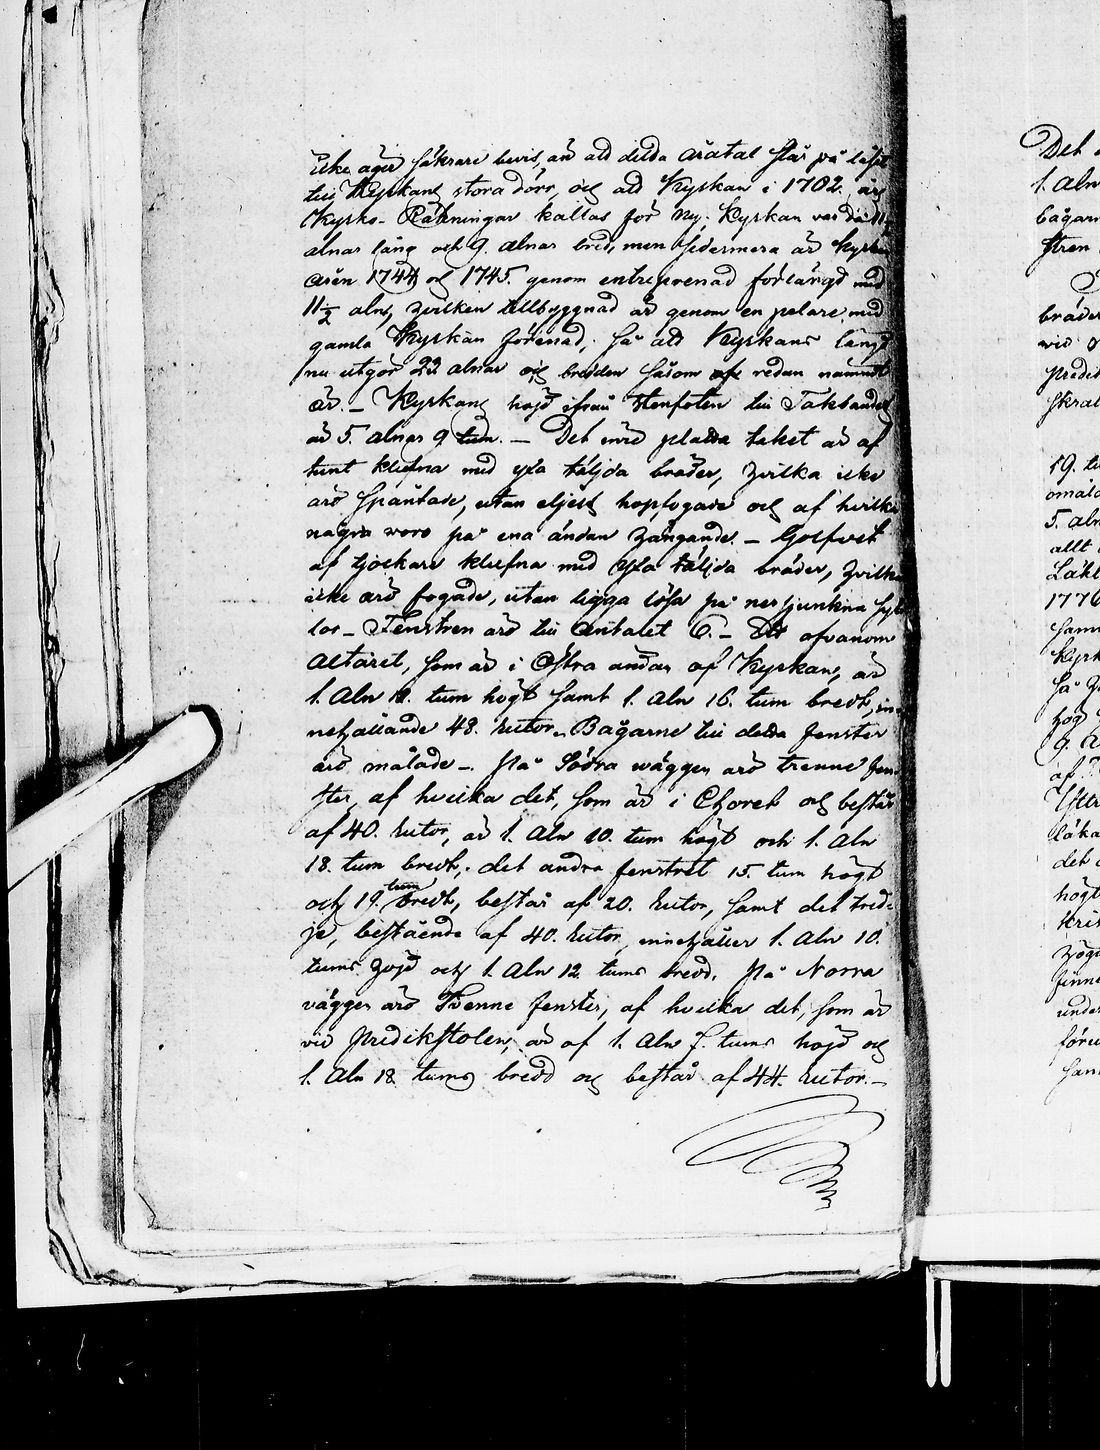 icke äger säkrare bevis, än att detta åratal står på låset
till Kyrkans stora dörr, och att Kyrkan i 1702 års
Kyrko-Räkningar kallas för Ny. Kyrkan var då 11
alnar lång och 9. alnar bred, men sedermera är Kyrkan
åren 1744 och 1745. genom entreprenad förlängd med
11 1/2 aln, hvilken tillbyggnad är genom en pelare med
gamla Kyrkan förenad; så att Kyrkans längd
nu utgör 22 alnar och bredden såsom redan nämndt
är. – Kyrkans höjd ifrån stenfoten till Takbandet
är 5. alnar 9 tum. – Det inre platta taket är af
tunt klufna med yxa täljda bräder, hvilka icke
äro spåntade, utan eljest hopfogade och af hvilka
några voro på ena ändan hängande. – Golfvet
af tjockare klufna med yxa täljda bräder, hvilka
icke äro fogade, utan ligga lösa på nersjunkna syl-
lor – Fenstren äro till Antalet 6. – Det ofvanom
Altaret, som är i Östra ändan af Kyrkan, är
1. Aln 18. tum högt samt 1. Aln 16. tum bredt, in-
nehållande 48. Rutor. Bågarne till detta fenster
äro målade –. På Södra väggen äro trenne fen-
ster, af hvilka det, som är i Choret och består
af 40. Rutor, är 1. Aln 10. tum högt och 1. Aln
18. tum bredt; det andra fenstret 15. tum högt
och 19. tum bredt, består af 20. Rutor, samt det tred-
je, bestående af 40. Rutor, innehåller 1. Aln 10.
tums höjd och 1. Aln 12. tums bredd. På Norra
väggen äro Tvenne fenster, af hvilka det, som är
vid Predikstolen, är af 1. Aln 7. tums höjd och
1. Aln 18. tums bredd och består af 44. Rutor. –
Det
1. Aln
bågarn
stren
bräder
vid
Predik
skrat
19. tu
omåla
5. aln
allt
Läkt
1776
samm
Kyrk
så
hög
9. A
af
Yttr
låka
det
högt
Kris
höga
finne
under
föru
sam